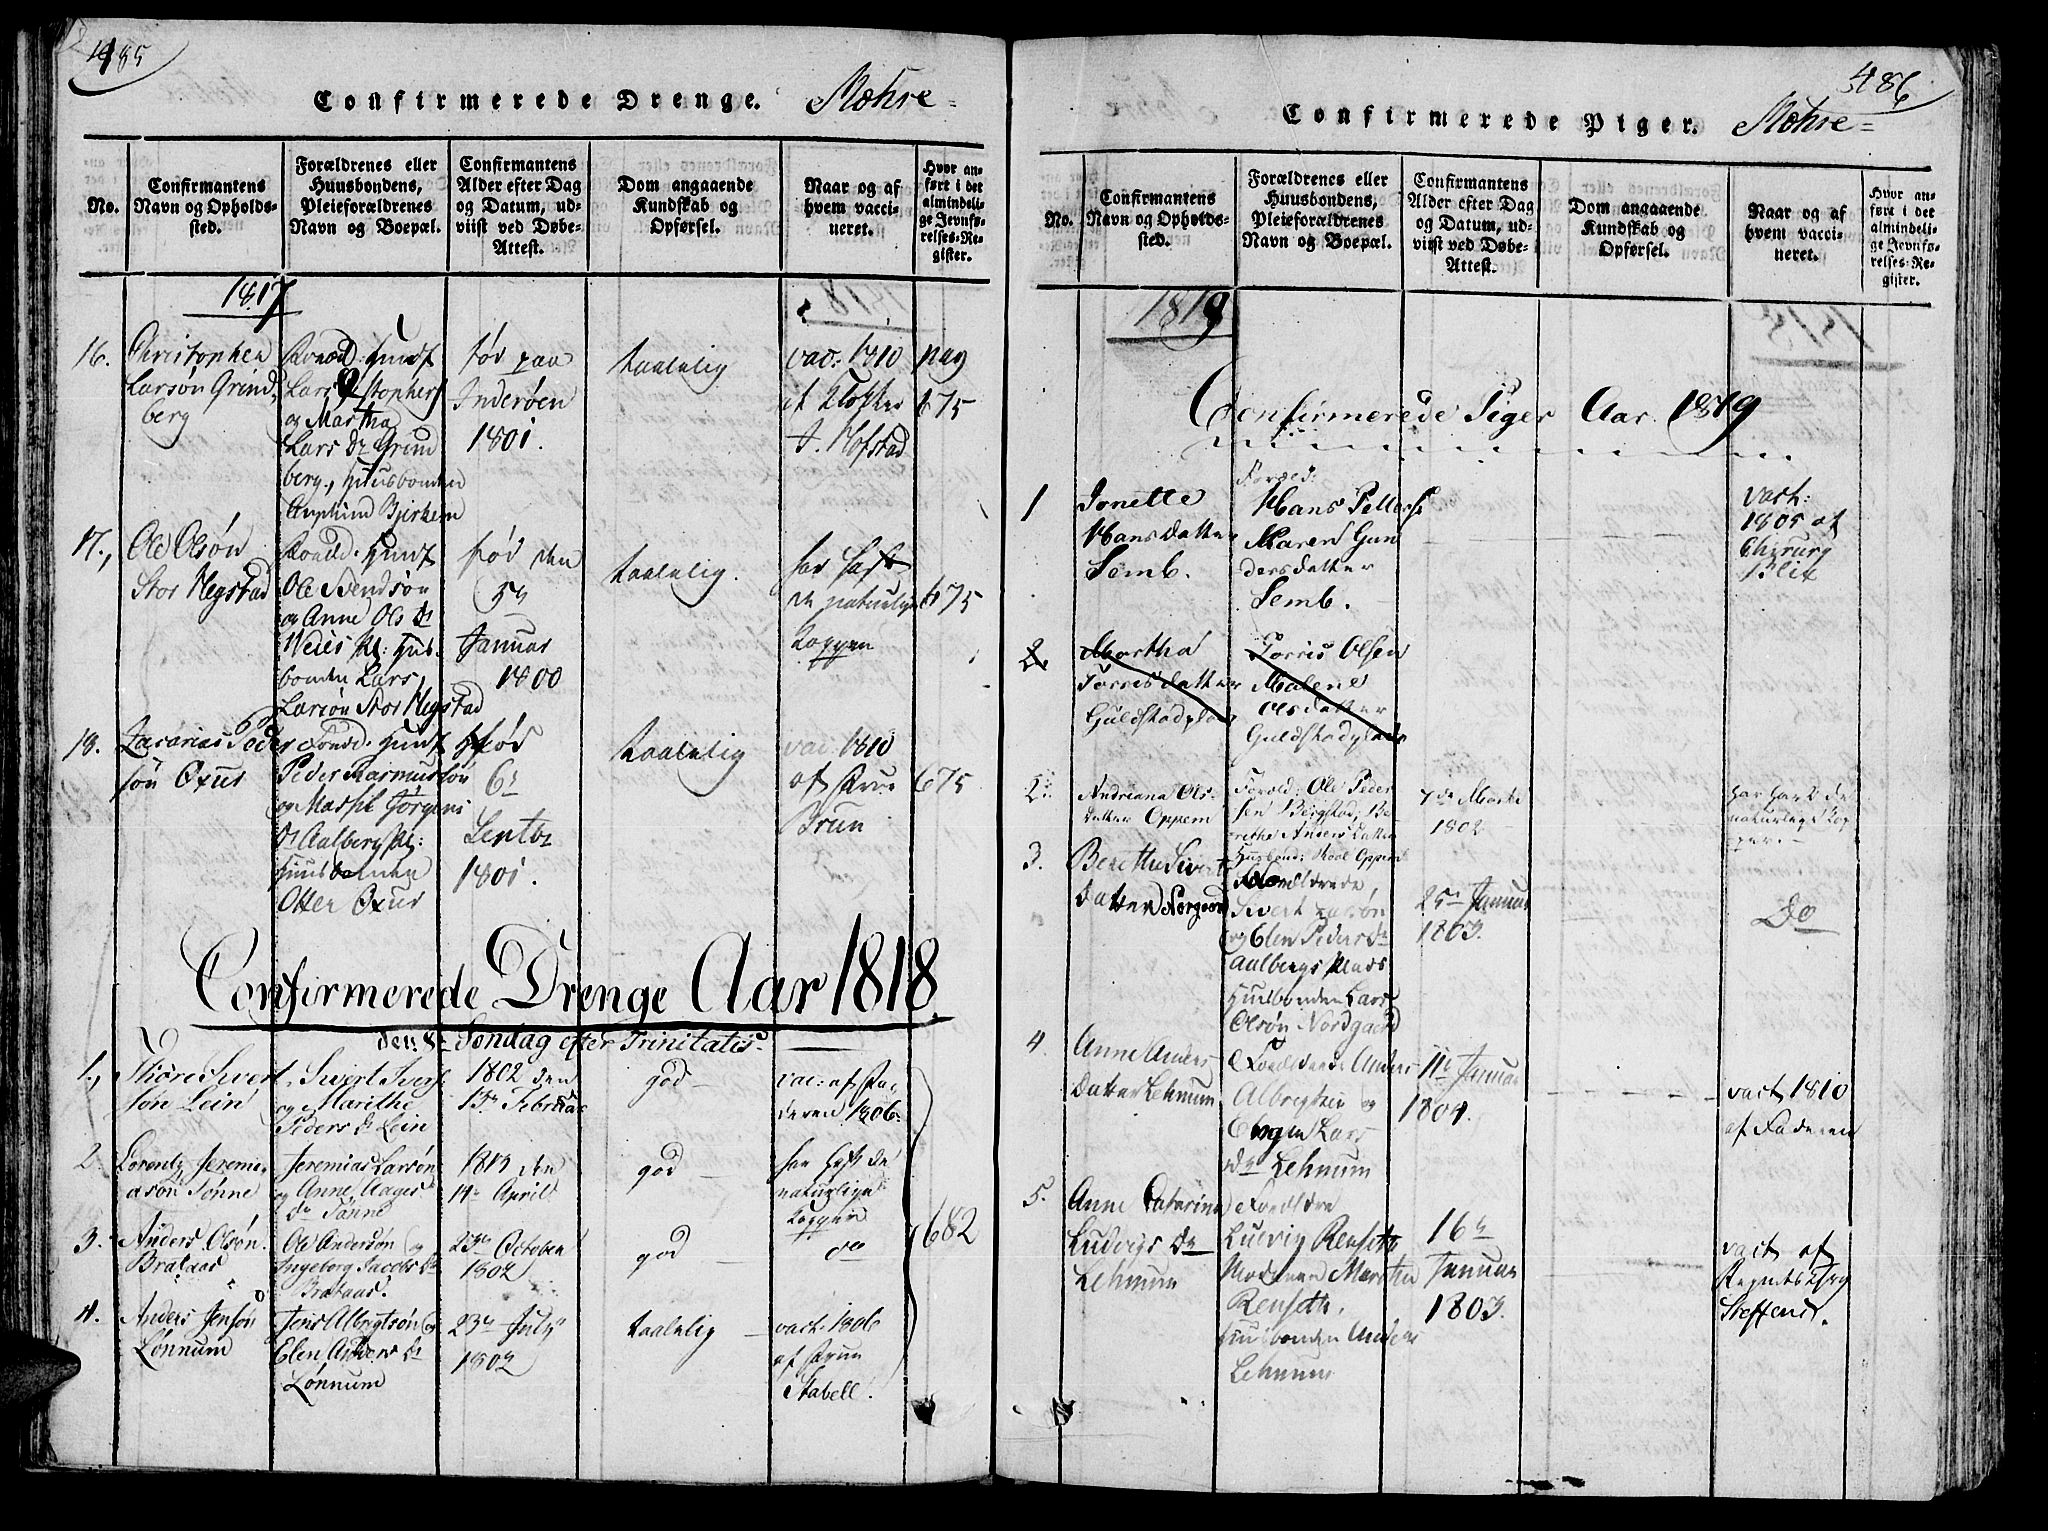 485
Confirmerede Drenge. Mæhre=
No.
Confirmantens Navn og Opholds-sted.
Forældrenes eller Huusbondens, Pleieforældrenes Navn og Boepæl.
Confirmantens Alder efter Dag og Datum, ud-viist ved Døbe-Attest.
Dom angaaende Kundskab og Opførsel.
Naar og af hvem vacci-neret.
Hvor an-ført i det almindeli-ge Jevnfø-relses-Re-gister.
1817
16.
Christopher
Larsøn Grind
berg
og Martha
Lars Dr Grind
berg., Huusbonden
Bjerkem
fød paa
Inderøen
1801.
taalelig
vac: 1810
af Klokker
J. Hofstad
pag
675
17.,
Ole Olsøn
Stor Hegstad
Ole Bendsøn
og Anne Ols Dr
Hus-
bonden Lars
Larsøn Stor Hegstad
fød den
5te
Januar
1800
taalelig.
har haft
de naturlige
Kopper
675
18.
Zacarias Peder
søn Oxus
Peder Rasmussøn
og Marsil Jørgens
Dr Aalberg Pl:
Huusbonden
Otter Oxus
fød
6te
Septbr
1801.
taalelig
vac: 1810
af Frue
Brun
675
Confirmerede Drenge Aar 1818.
den 8de Søndag efter Trinitatis.
1.,
Thore Sivert
søn Lein
Sivert Siverts
og Marithe
Peders Dr Lein
1802 den
13de Februar
god
vac: af Fa
deren 1806.
2.
Lorentz Jeremi
asøn Tønne
Jeremias Larsøn
og Anne Aages
Dr Tønne
14de April
god
har haft de
naturlige
Kopper
3.
Anders Olsøn
Brataas
Ole Andersøn og
Ingeborg Jacobs Dr
Brataas.
23de October
1802
god
do
682
4.
Anders Jensøn
Lønnum
Jens Albregtsøn og
Elen Anders Dr
Lønnum
23de July
1802
taalelig
vact. 1806
af Frue
Stabell.
486
Confirmerede Piger. Mæhre=
No.
Confirmantens Navn og Opholds-sted.
Forældrenes eller Huusbondens, Pleieforældrenes Navn og Boepæl.
Confirmantens Alder efter Dag og Datum, ud-viist ved Døbe-Attest.
Dom angaaende Kundskab og Opførsel.
Naar og af hvem vacci-neret.
Hvor an-ført i det almindeli-ge Jevnfø-relses-Re-gister.
1819
Confirmerede Piger Aar 1819
1
Jonette
Hansdatter
Semb.
Foræld:
Hans Petters
Maren Gun
dersdatter
Semb.
vact:
1805 af
Chirurg
Blix
2
Martha
Torrisdatter
Guldstadplads
Torris Olsen
Malene
Olsdatter
Guldstadplads
2.
Andriana Ols-
datter Oppem
Foræld: Ole Peder
sen Bergstad, Be
rethe Anders Datter
Oppem
7de Marts
1802
har havt de
naturlige Kop
per.
3.
Berethe Siverts
Datter Norgaard
Forældrene,
Sivert
og Elen Peders Dr
Aalbergs Plads
Huusbonden Lars
Olsøn Nordgaard
25de Januar
1803.
Do
4.
Anne Anders
Datter Lehnum
Forældrene Anders
og
Lars
Dr Lehnum
11te Januar
1804.
vact 1810
af Faderen
5.
Anne Catarina
Ludvigs Dr
Lehnum
Forældre
Ludvig Renseth
Moderen Martha
Renseth.
Huusbonden Anders
Lehnum
16de
Januar
1803.
vact af
Regmts Chrg
Steffens.